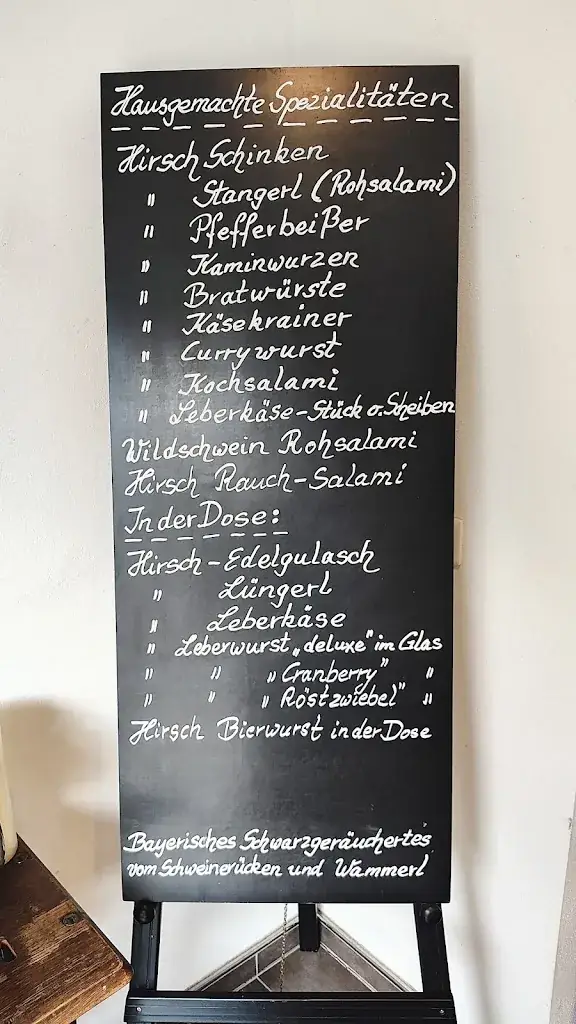 Hausgemachte Spezialitäten
Hirsch Schinken
" Stangerl (Rohsalami)
" Pfefferbeißer
" Kaminwurzen
" Bratwürste
" Käsekrainer
" Currywurst
" Kochsalami
" Leberkäse-Stück o. Scheiben
Wildschwein Rohsalami
Hirsch Rauch-Salami
In der Dose:
Hirsch-Edelgulasch
" Lüngerl
" Leberkäse
" Leberwurst „deluxe" im Glas
" " „Cranberry" "
" " „Röstzwiebel" "
Hirsch Bierwurst in der Dose
Bayerisches Schwarzgeräuchertes
vom Schweinerücken und Wammerl